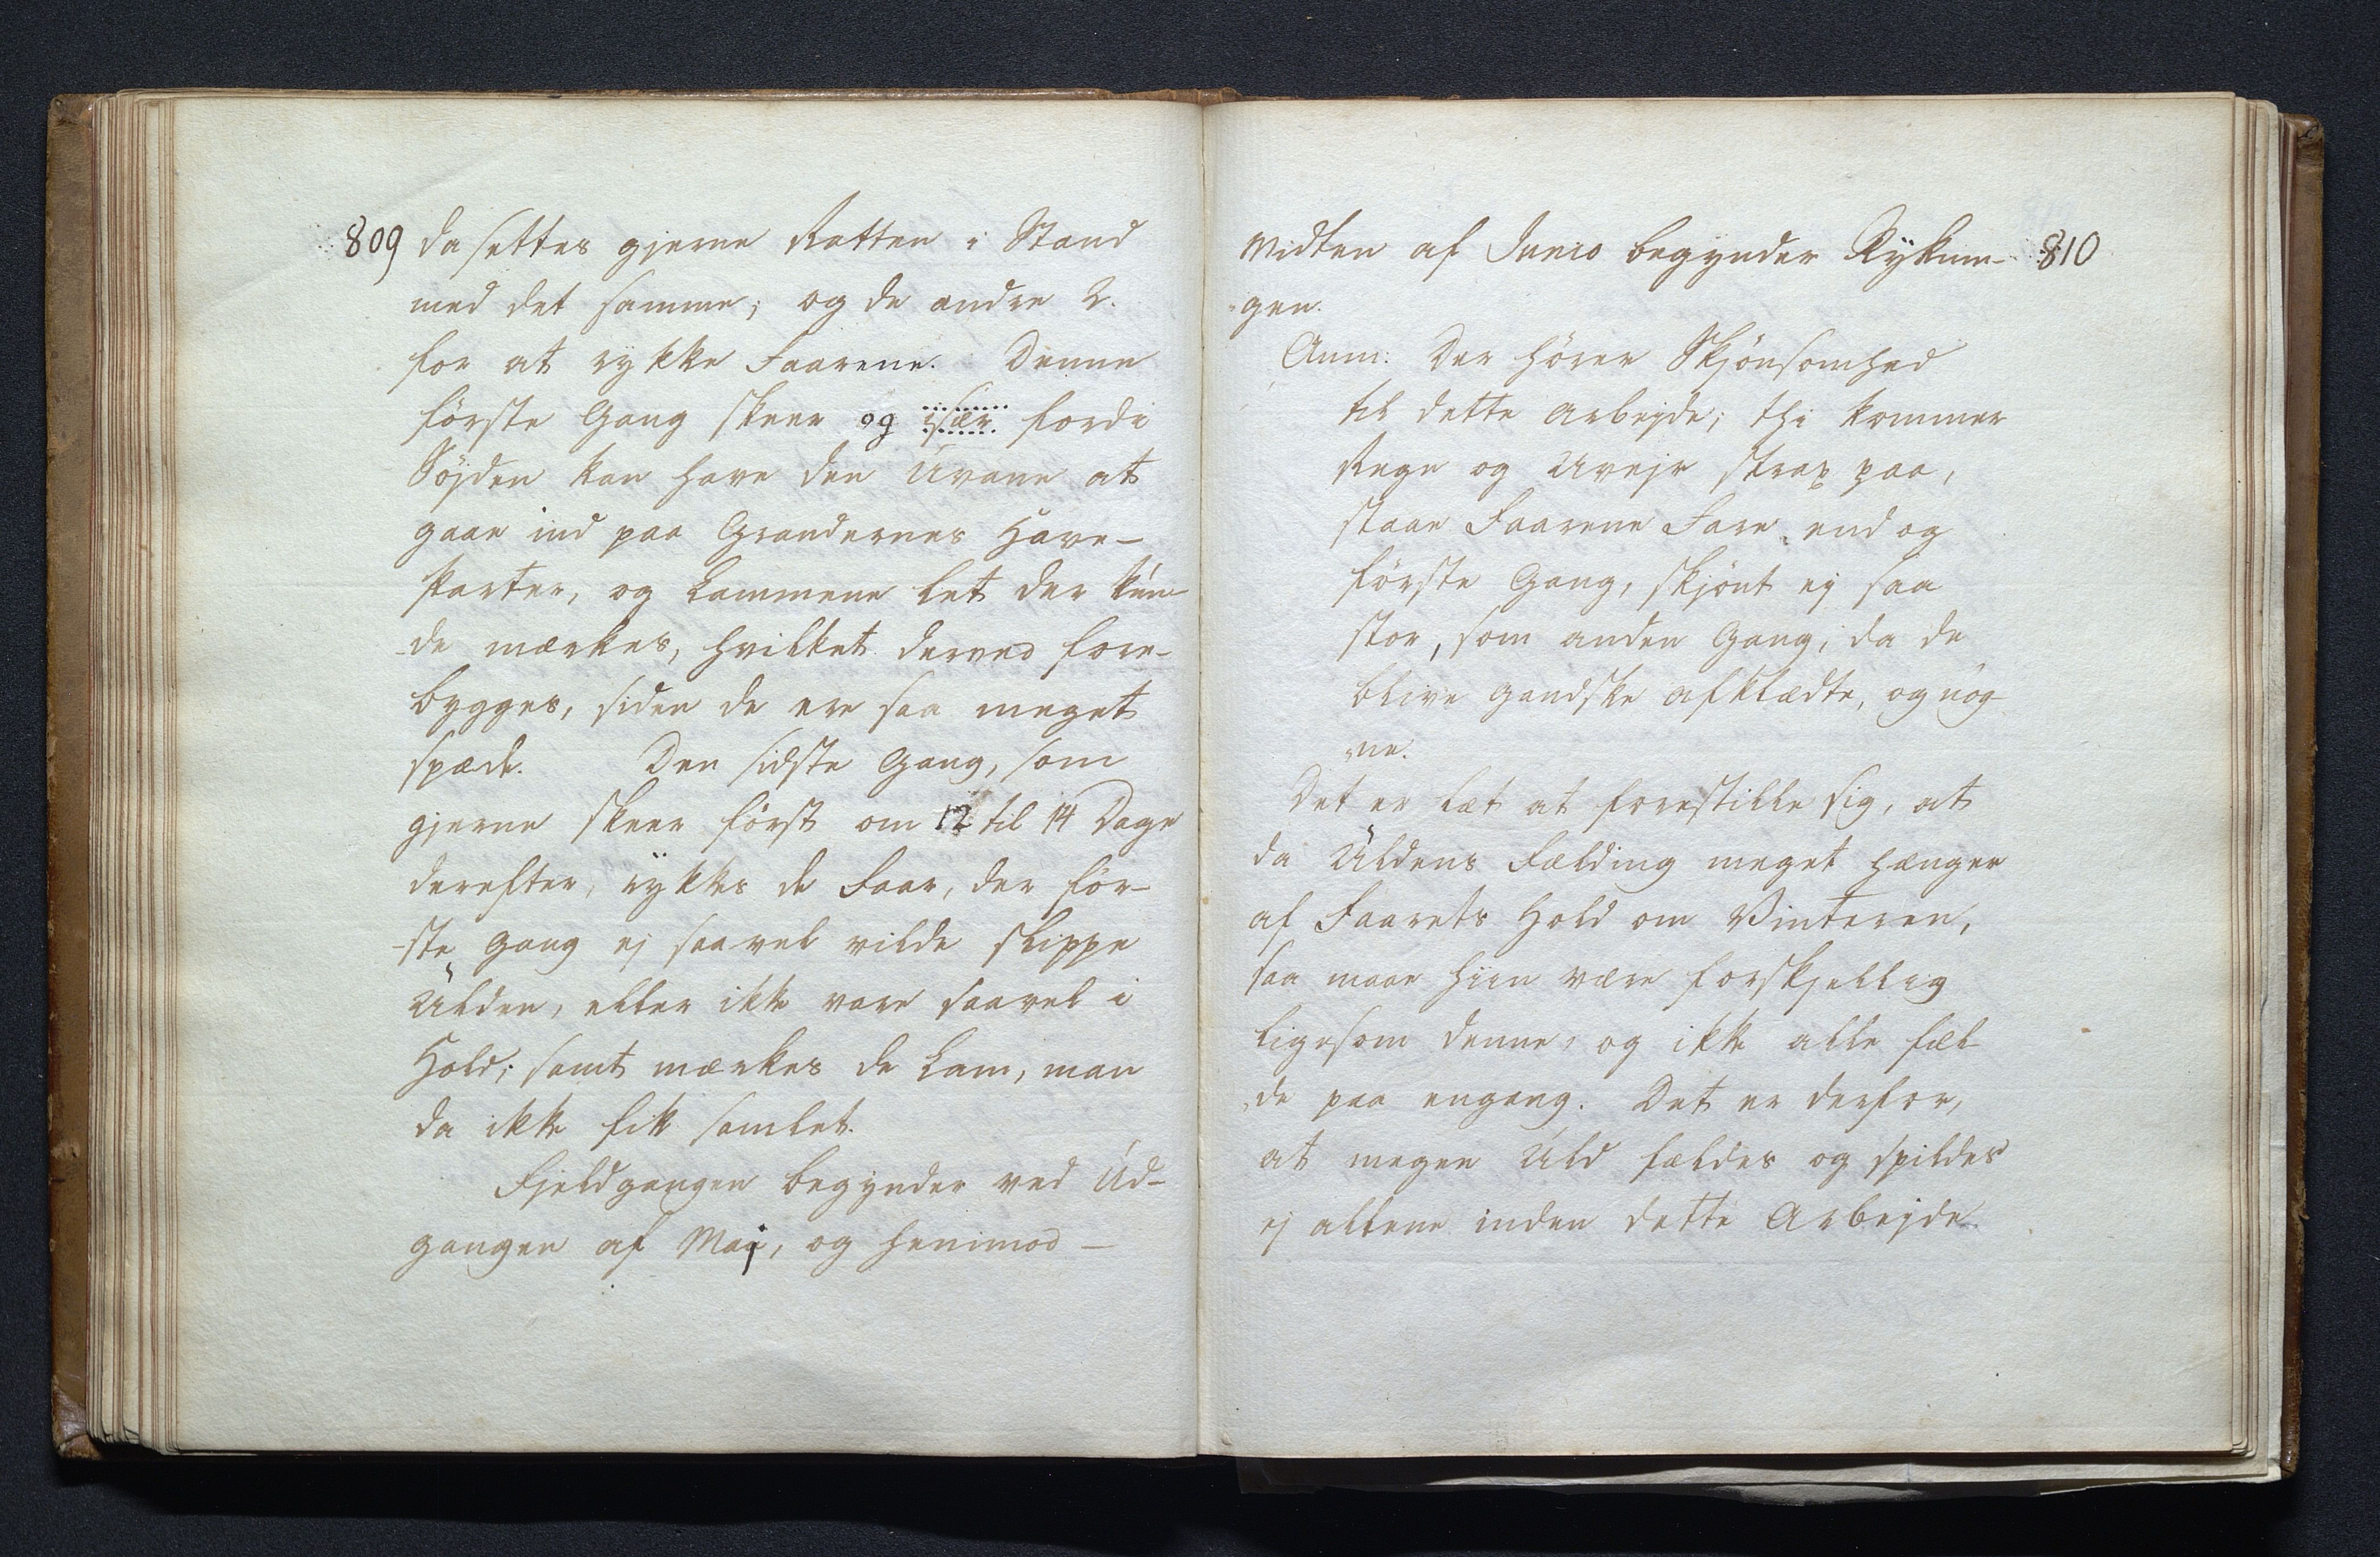 809 da settes gjerne Retten i Stand
med det samme; og de andre 2.
for at rykke Faarene. Denne
første Gang skeer og især fordi
Søjden kan have den Uvane at
gaae ind paa Grandernes Have-
parter, og Lammene let der kun-
-de mærkes, hvilket derved fore-
bygges, siden de ere saa meget
spæde. Den sidste Gang, som
gjerne skeer først om 12 til 14 Dage
derefter, rykkes de Faar, der før-
-ste Gang ej saavel vilde slippe
Ulden, eller ikke vare saavel i
Hold; samt mærkes de Lam, man
da ikke fik samlet.
Fjeldgangen begynder ved Ud-
gangen af Maj, og henimod -
Midten af Junio begynder Rÿknin- 810
-gen.
Anm: Der hører Skjønsomhed
til dette Arbejde; thi kommer
Regn og Uvejr strax paa,
staae Faarene Fare, end og
første Gang, skjønt ej saa
stor, som anden Gang; da de
blive gandske afklædte, og nøg-
-ne.
Det er let at forestille sig, at
da Uldens Fælding meget hænger
af Faarets Hold om Vinteren,
saa maae hiin være forskjellig
ligesom denne, og ikke alle fæl-
-de paa engang. Det er derfor,
at megen Uld fældes og spildes
ej allene inden dette Arbejde